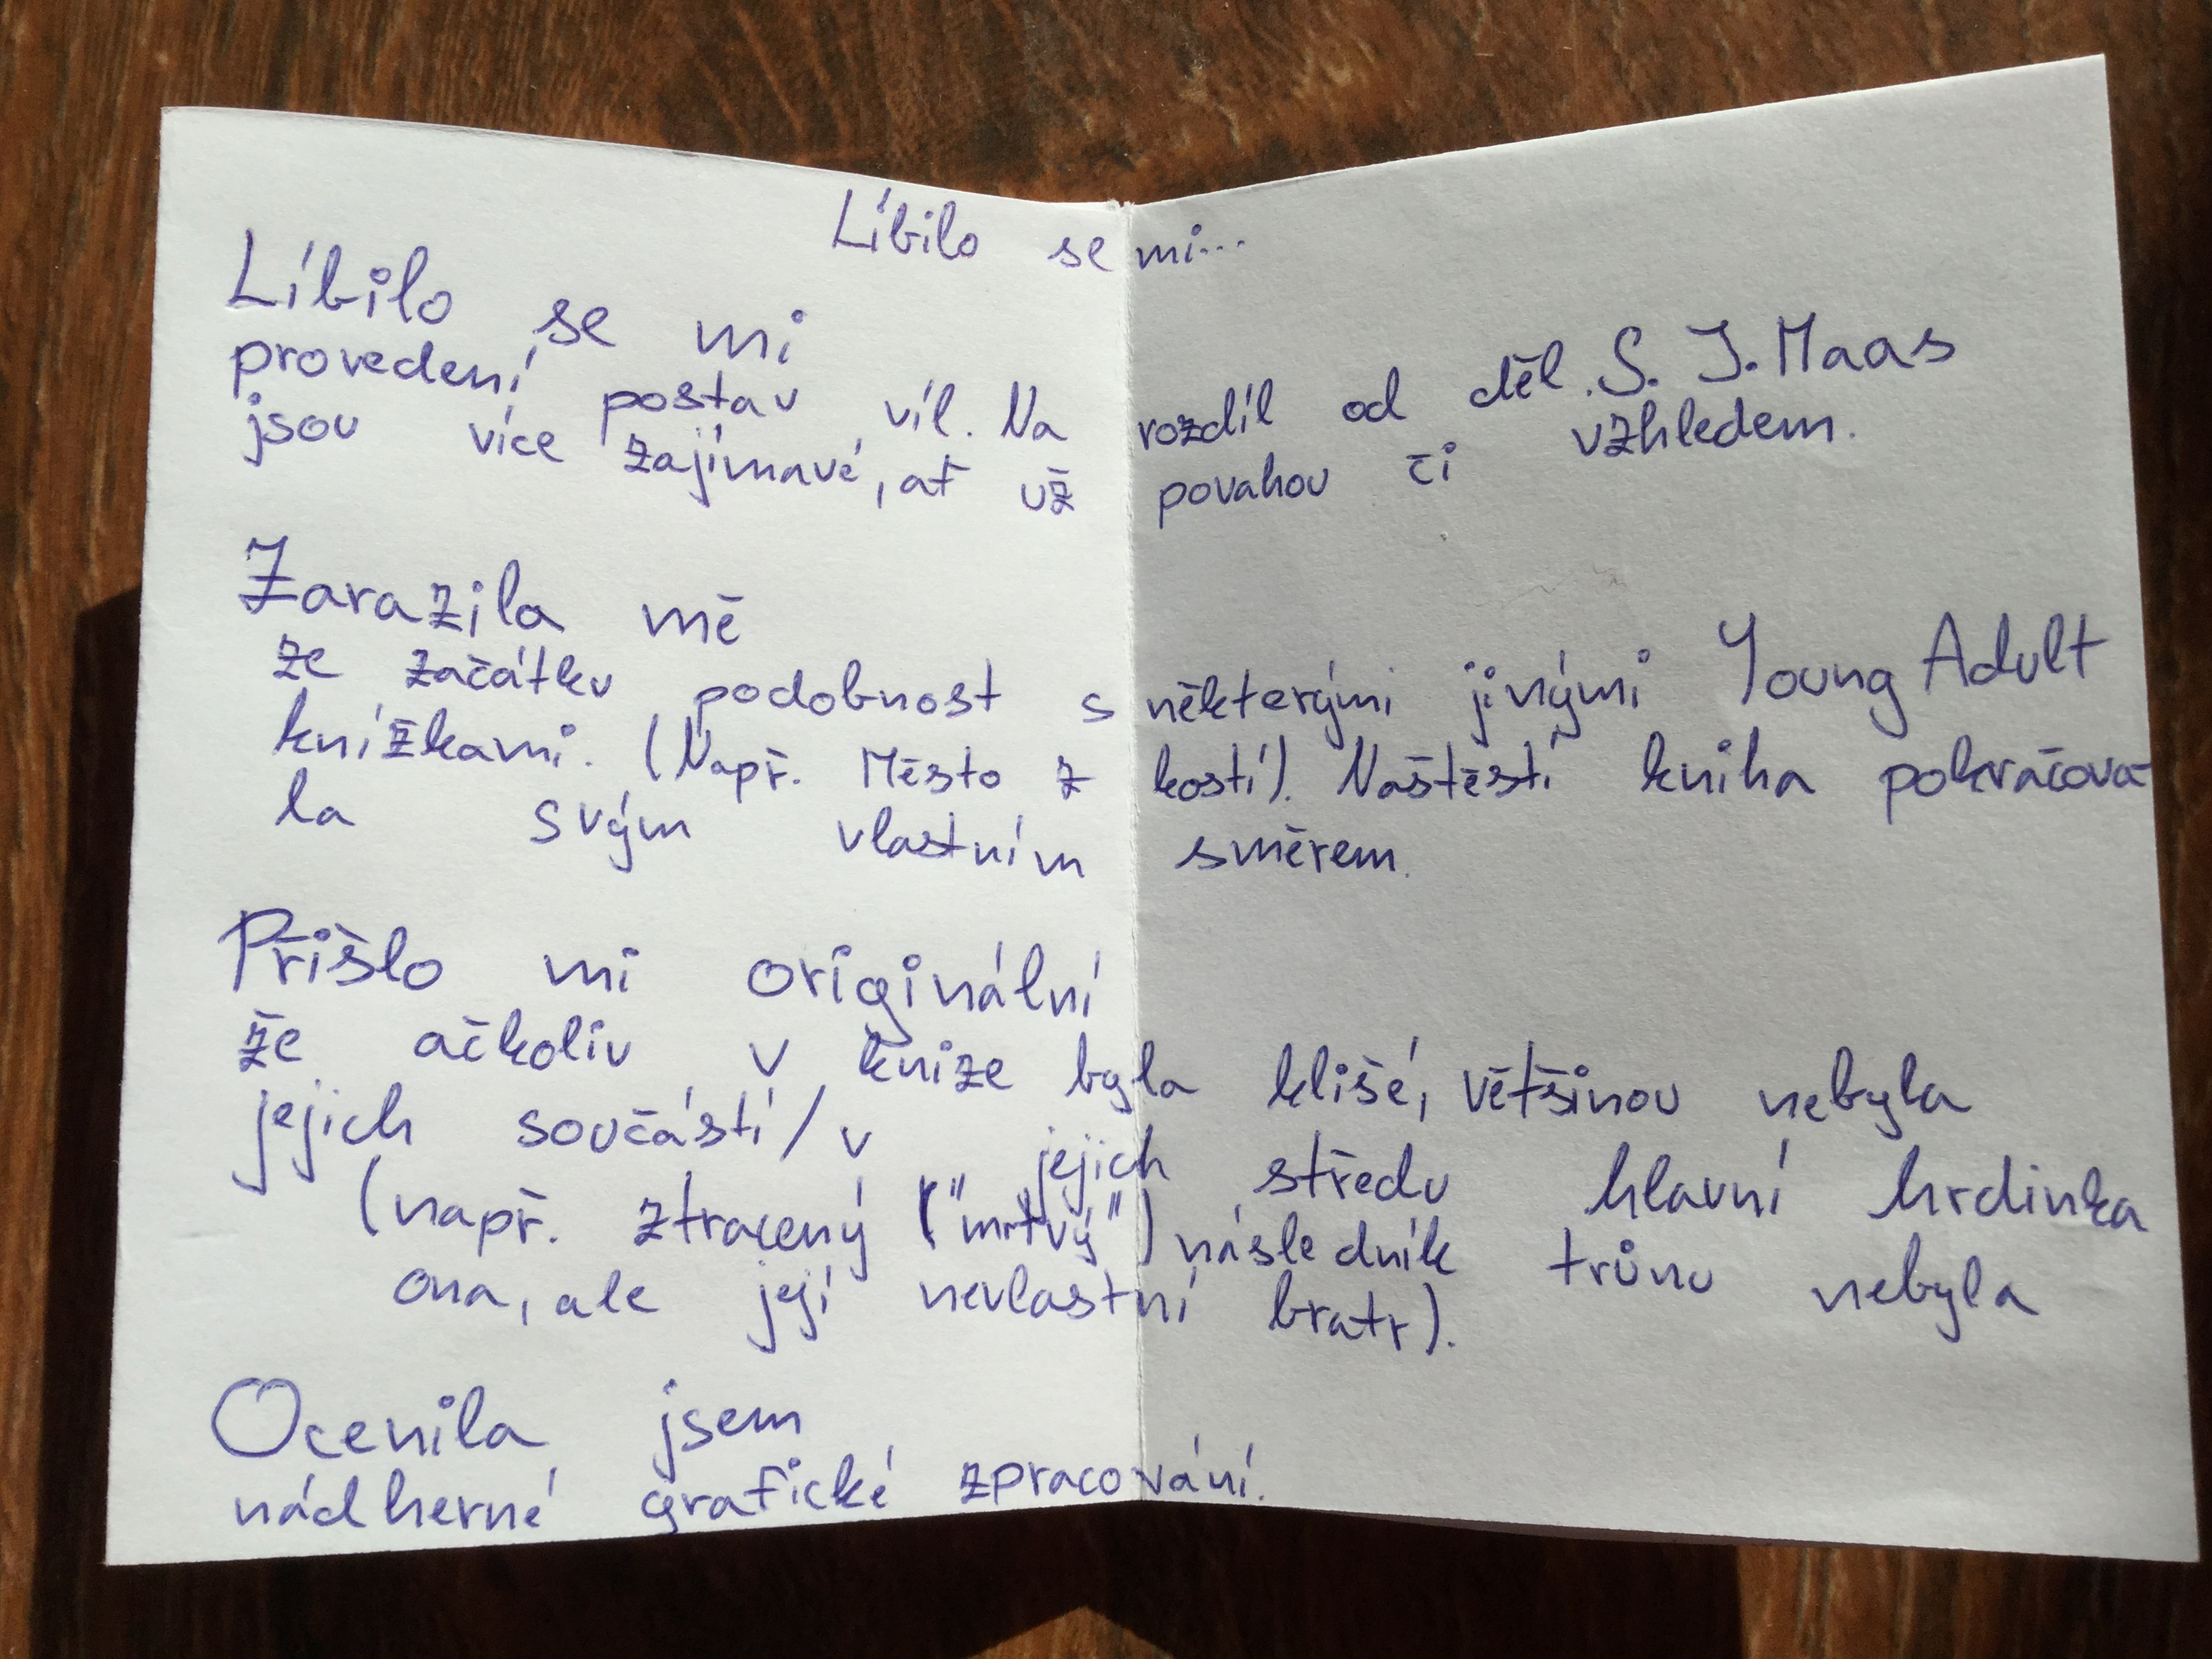 Líbilo se mi...
Líbilo se mi
provedení postav víl. Na rozdíl od děl S. J. Maas
jsou více zajímavé, ať už povahou či vzhledem.
Zarazila mě
ze začátku podobnost s některými jinými Young Adult
knížkami. (Např. Město z kostí). Naštěstí kniha pokračova-
la svým vlastním směrem.
Přišlo mi originální
že ačkoliv v knize byla klišé, většinou nebyla
jejich součástí/v jejich středu hlavní hrdinka
(např. ztracený ("mrtvý") následník trůnu nebyla
ona, ale její nevlastní bratr).
Ocenila jsem
nádherné grafické zpracování.